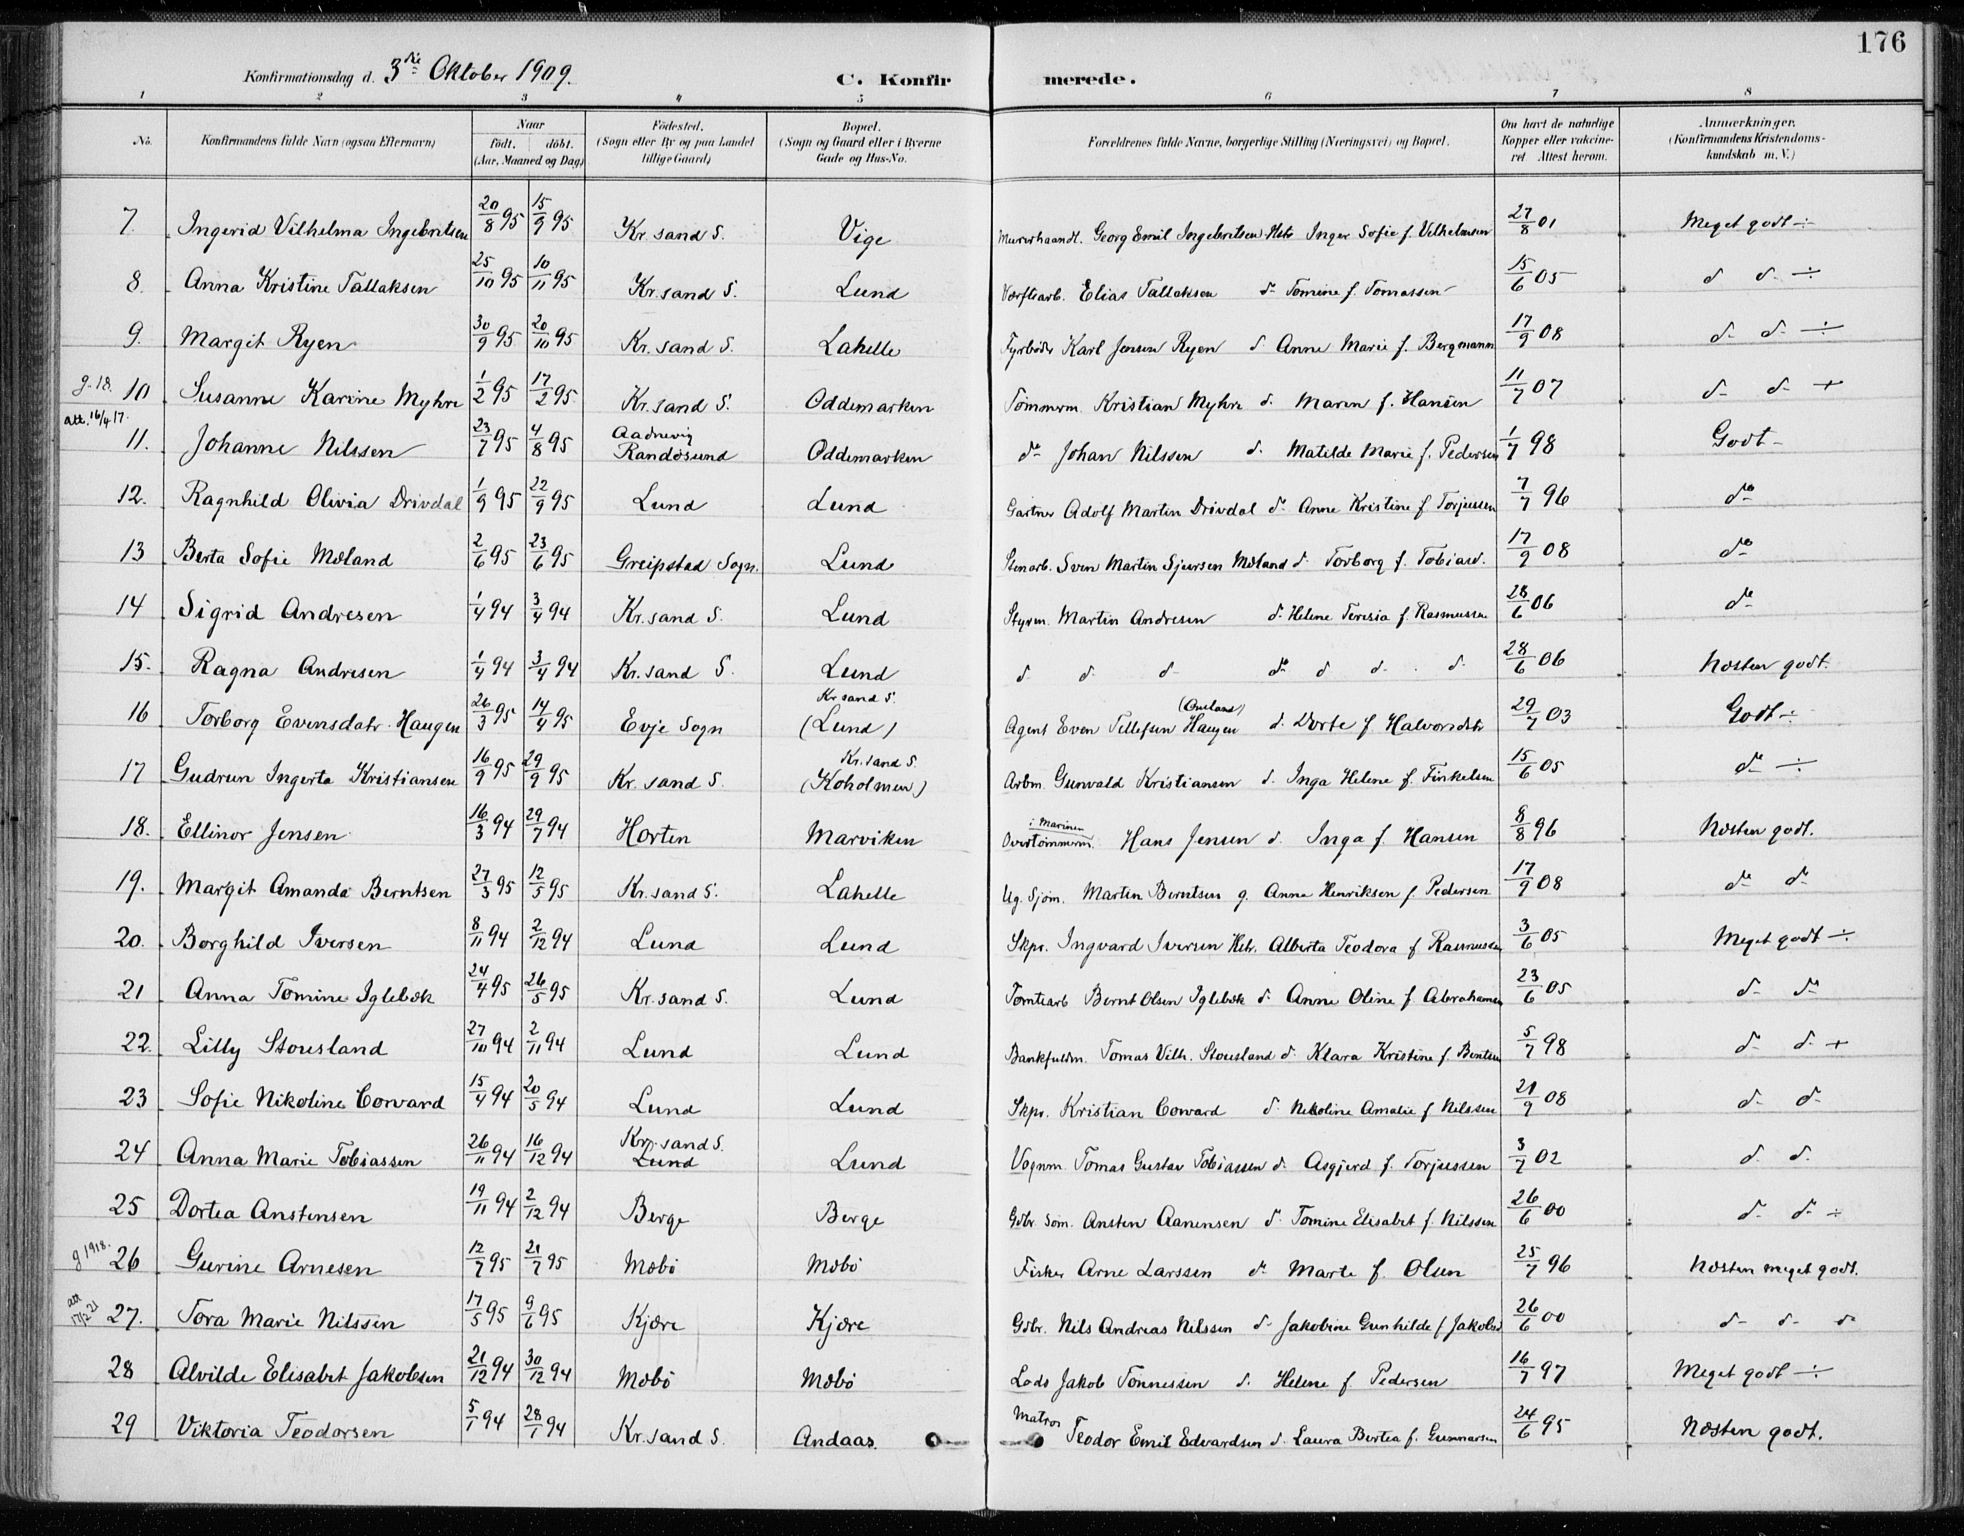 176
Konfirmationsdag d. 3die Oktober 1909. C. Konfirmerede.
1 2 3 4 5 6 7 8
No. Konfirmandens fulde Navn (ogsaa Efternavn) Naar født. døbt. (Aar, Maaned og Dag) Fødested. (Sogn eller By og paa Landet tillige Gaard) Bopæl. (Sogn og Gaard eller i Byerne Gade og Hus-No. Forældrenes fulde Navne, borgerlige Stilling (Næringsvei) og Bopæl. Om havt de naturlige Kopper eller vakcineret. Attest herom. Anmærkninger. (Konfirmandens Kristendomskundskab m. V.)
7. Ingerid Vilhelma Ingebritsen 20/8 95 15/9 95 Kr.sand S. Vige Murerhaandl. Georg Emil Ingebritsen Hstr Inger Sofie f. Vilhelmsen 27/8 01 Meget godt ÷
8. Anna Kristine Tallaksen 25/10 95 10/11 95 Kr.sand S. Lund Værftsarb. Elias Tallaksen do Tomine f. Tomassen 15/6 05 d d ÷
9. Margit Ryen 30/9 95 20/10 95 Kr.sand S. Lahelle Fyrbøder Karl Jensen Ryen d. Anne Marie f. Bergmann 17/9 08 d d ÷
g. 18. 10 Susanne Karine Myhre 1/2 95 17/2 95 Kr.sand S. Oddemarken Tømmerm. Kristian Myhre d. Maren f. Hansen 11/7 07 d d +
att. 16/4 17. 11. Johanne Nilssen 23/7 95 4/8 95 Aadnevig Randøsund Oddemarken do Johan Nilssen d. Matilde Marie f. Pedersen 1/7 98 Godt
12. Ragnhild Olivia Drivdal 1/9 95 22/9 95 Lund Lund Gartner Adolf Martin Drivdal do Anne Kristine f Torjussen 7/7 96 do
13 Berta Sofie Mæland 2/6 95 23/6 95 Greipstad Sogn. Lund Stenarb. Sven Martin Sjursen Mæland d. Torborg f. Tobiasd. 17/9 08 do
14 Sigrid Andresen 1/4 94 3/4 94 Kr.sand S. Lund Styrm. Martin Andresen d. Helene Teresia f. Rasmussen 28/6 06 do
15. Ragna Andresen 1/4 94 3/4 94 Kr.sand S. Lund d d d do d d d 28/6 06 Næsten godt.
16 Torborg Evensdatr. Haugen 26/3 95 14/4 95 Evje Sogn Kr sand S. (Lund) Agent Even Tellefsen Haugen d. Dorte f Halvorsdtr 29/7 03 Godt ÷
17 Gudrun Ingerta Kristiansen 16/9 95 29/9 95 Kr.sand S. Kr.sand S. (Koholmen) Arbm. Gunvald Kristiansen d. Inga Helene f. Finkelsen 15/6 05 do ÷
18. Ellinor Jensen 16/3 94 29/7 94 Horten Marviken i Marinen Overtømmerm. Hans Jensen d. Inga f. Hansen 8/8 96 Næsten godt.
19. Margit Amanda Berntsen 27/3 95 12/5 95 Kr.sand S. Lahelle Ug. Sjøm. Martin Berntsen g. Anne Henriksen f. Pedersen 17/9 08 do do
20. Borghild Iversen 8/11 94 2/12 94 Lund Lund Skpr. Ingvard Iversen Hstr. Alberta Teodora f Rasmussen 3/6 05 Meget godt ÷
21 Anna Tomine Iglebæk 24/4 95 26/5 95 Kr.sand S. Lund Tomtearb Bernt Olsen Iglebæk d. Anne Oline f. Abrahamsen 23/6 05 d do
22. Lilly Stousland 27/10 94 2/11 94 Lund Lund Bankfuldm. Tomas Vilh. Stousland d. Klara Kristine f. Bentsen 5/7 98 d d +
23 Sofie Nikoline Corvard 15/4 94 20/5 94 Lund Lund Skpr. Kristian Corvard d. Nikoline Amalie f Nilssen 21/9 08 d d
24 Anna Marie Tobiassen 26/11 94 16/12 94 Kr.sand S. Lund Lund Vognm. Tomas Gustav Tobiassen d. Asgjerd f. Torjussen 3/7 02 d. d.
25 Dortea Anstensen 19/11 94 2/12 94 Berge Berge Gdbr. Søm. Ansten Aanensen d. Tomine Elisabet f. Nilssen 26/6 00 d d ÷
g 1918. 26 Gurine Arnesen 12/7 95 21/7 95 Mæbø Mæbø Fisker Arne Larssen do Marte f. Olsen 25/7 96 Næsten meget godt.
att 17/2 21 27. Tora Marie Nilssen 17/5 95 9/6 95 Kjære Kjære Gdbr. Nils Andreas Nilssen d Jakobine Gunhilde f Jakobsd 26/6 00 d d d
28 Alvilde Elisabet Jakobsen 21/12 94 30/12 94 Mæbø Mæbø Lods Jakob Tønnessen d. Helene f Pedersen 16/7 97 Meget godt ÷
29 Viktoria Teodorsen 5/1 94 28/1 94 Kr.sand S. Andaas. Matros Teodor Emil Edvardsen d. Laura Bertea f. Gunnarsen 24/6 95 Næsten godt.